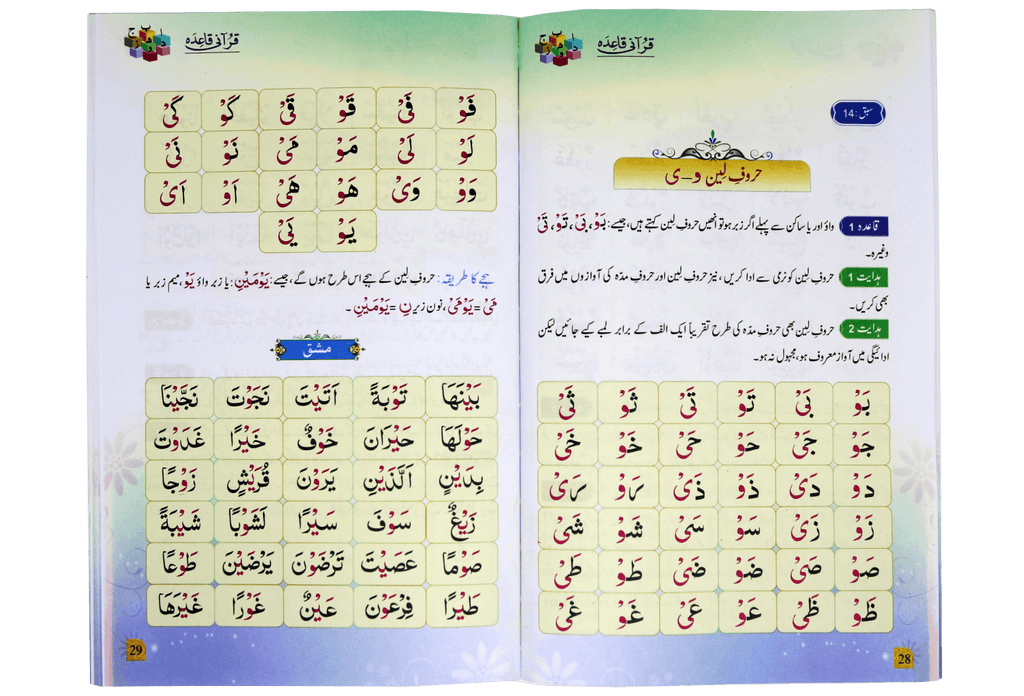 قرآنی قاعدہ
سبق : 14
حروفِ لین و-ی
قاعدہ 1 واؤ اور یا ساکن سے پہلے اگر زبر ہو تو انھیں حروفِ لین کہتے ہیں، جیسے: بَوْ، بَیْ، تَوْ، تَیْ
وغیرہ۔
ہدایت 1 حروفِ لین کو نرمی سے ادا کریں، نیز حروفِ لین اور حروفِ مدّہ کی آوازوں میں فرق
بھی کریں۔
ہدایت 2 حروفِ لین بھی حروفِ مدّہ کی طرح تقریباً ایک الف کے برابر لمبے کیے جائیں گے لیکن
ادائیگی میں آواز معروف ہو، مجہول نہ ہو۔
بَوْ بَیْ تَوْ تَیْ ثَوْ ثَیْ
جَوْ جَیْ حَوْ حَیْ خَوْ خَیْ
دَوْ دَیْ ذَوْ ذَیْ رَوْ رَیْ
زَوْ زَیْ سَوْ سَیْ شَوْ شَیْ
صَوْ صَیْ ضَوْ ضَیْ طَوْ طَیْ
ظَوْ ظَیْ عَوْ عَیْ غَوْ غَیْ
28
قرآنی قاعدہ
فَوْ فَیْ قَوْ قَیْ کَوْ کَیْ
لَوْ لَیْ مَوْ مَیْ نَوْ نَیْ
وَوْ وَیْ هَوْ هَیْ اَوْ اَیْ
یَوْ یَیْ
ہجے کا طریقہ: حروفِ لین کے ہجے اس طرح ہوں گے، جیسے: یَوْمَیْنِ: یا زبر واؤ یَوْ، میم زبر یا
مَیْ = یَوْمَیْ، نون زیر نِ = یَوْمَیْنِ۔
مشق
بَیْنَهَا تَوْبَةً اَتَیْتَ نَجَوْتَ نَجَّیْنَا
حَوْلَهَا حَیْرَانَ خَوْفٌ خَیْرًا غَدَوْتَ
بِدَیْنٍ اَلَّذَیْنِ یَرَوْنَ قُرَیْشٍ زَوْجًا
زَیْغٌ سَوْفَ سَیْرًا لَشَوْبًا شَیْبَةً
صَوْمًا عَصَیْتَ تَرْضَوْنَ یَرْضَیْنَ طَوْعًا
طَیْرًا فِرْعَوْنَ عَیْنٌ غَوْرًا غَیْرَهَا
29